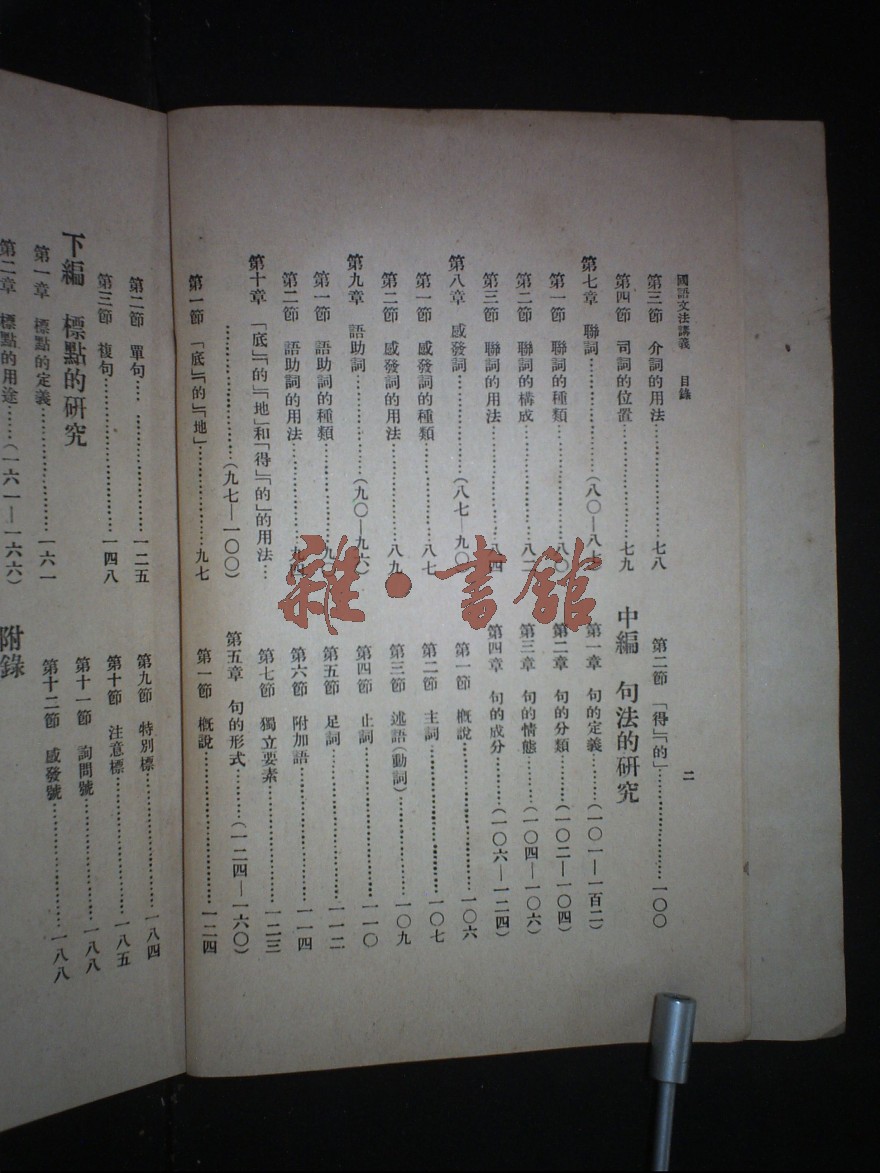 國語文法講義　目錄
第三節　介詞的用法……七八
第四節　司詞的位置……七九
第七章　聯詞……(八〇—八七)
第一節　聯詞的種類……八〇
第二節　聯詞的構成……八二
第三節　聯詞的用法……八四
第八章　感發詞……(八七—九〇)
第一節　感發詞的種類……八七
第二節　感發詞的用法……八九
第九章　語助詞……(九〇—九六)
第一節　語助詞的種類……九〇
第二節　語助詞的用法……九四
第十章　「底」「的」「地」和「得」「的」的用法…
……(九七—一〇〇)
第一節　「底」「的」「地」……九七
二
第二節　「得」「的」……一〇〇
中編　句法的研究
第一章　句的定義……(一〇一—一百二)
第二章　句的分類……(一〇二—一〇四)
第三章　句的情態……(一〇四—一〇六)
第四章　句的成分……(一〇六—一二四)
第一節　概說……一〇六
第二節　主詞……一〇七
第三節　述語(動詞)……一〇九
第四節　止詞……一一〇
第五節　足詞……一一二
第六節　附加語……一一四
第七節　獨立要素……一二三
第五章　句的形式……(一二四—一六〇)
第一節　概說……一二四
第二節　單句……一二五
第三節　複句……一四八
下編　標點的研究
第一章　標點的定義……一六一
第二章　標點的用途……(一六一—一六六)
第九節　特別標……一八四
第十節　注意標……一八五
第十一節　詢問號……一八八
第十二節　感發號……一八八
附錄
雜·書館